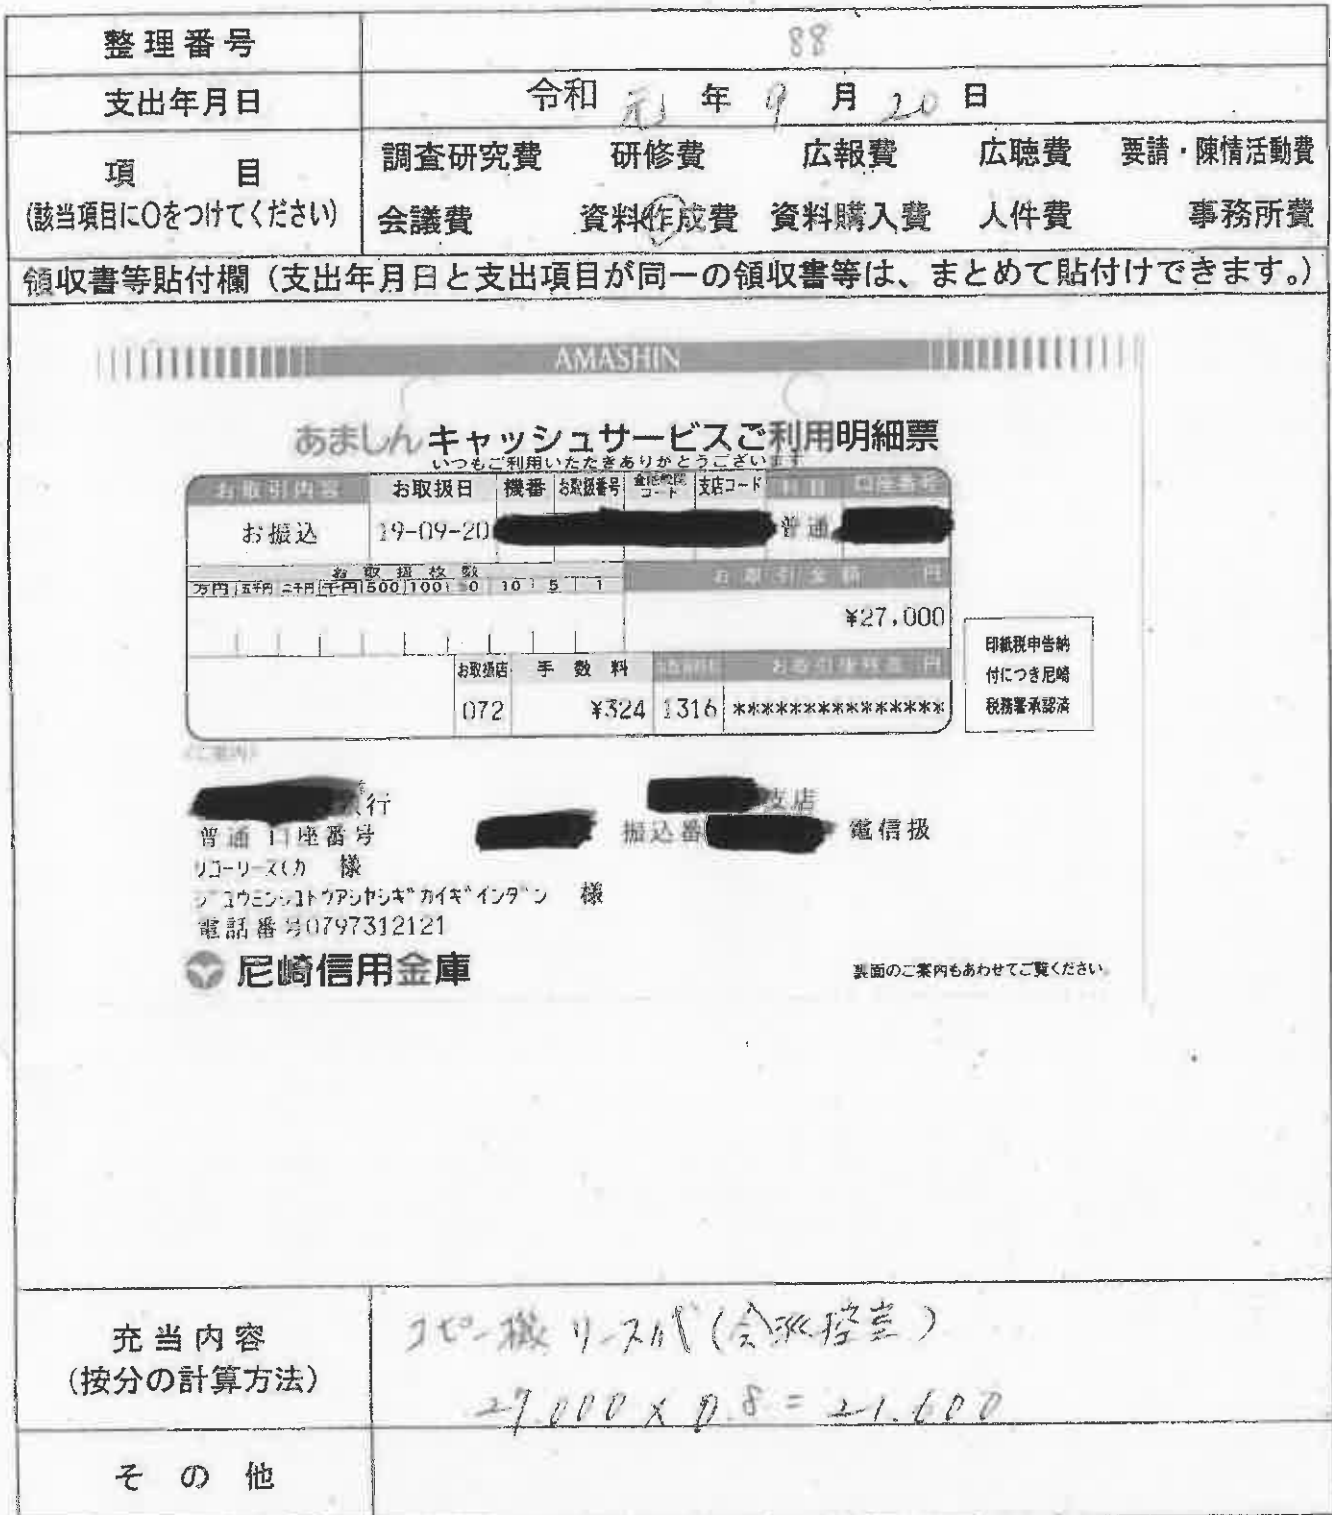 整理番号 88
支出年月日 令和 元 年 9 月 20 日
項目 調査研究費 研修費 広報費 広聴費 要請・陳情活動費
(該当項目に〇をつけてください) 会議費 資料作成費 資料購入費 人件費 事務所費
領収書等貼付欄（支出年月日と支出項目が同一の領収書等は、まとめて貼付けできます。）
AMASHIN
あましん キャッシュサービスご利用明細票
いつもご利用いただきありがとうござい
お取引内容 お取扱日 機番 お取扱番号 金融機関コード 支店コード 口座番号
お振込 19-09-20 普通
お取扱枚数 お取引金額 円
万円 五千円 二千円 千円 500 100 50 10 5 1
¥27,000
お取扱店 手数料 お取引後残高 円
072 ¥324 1316 ***************
印紙税申告納
付につき尼崎
税務署承認済
(ご案内)
銀行 支店
普通 口座番号 振込番 電信扱
リコーリース(カ 様
ジユウミンシユトウアシヤシギカイギインダン 様
電話番号0797312121
尼崎信用金庫
裏面のご案内もあわせてご覧ください。
充当内容 コピー機リース代(会派控室)
(按分の計算方法) 27.000 × 0.8 = 21.600
その他